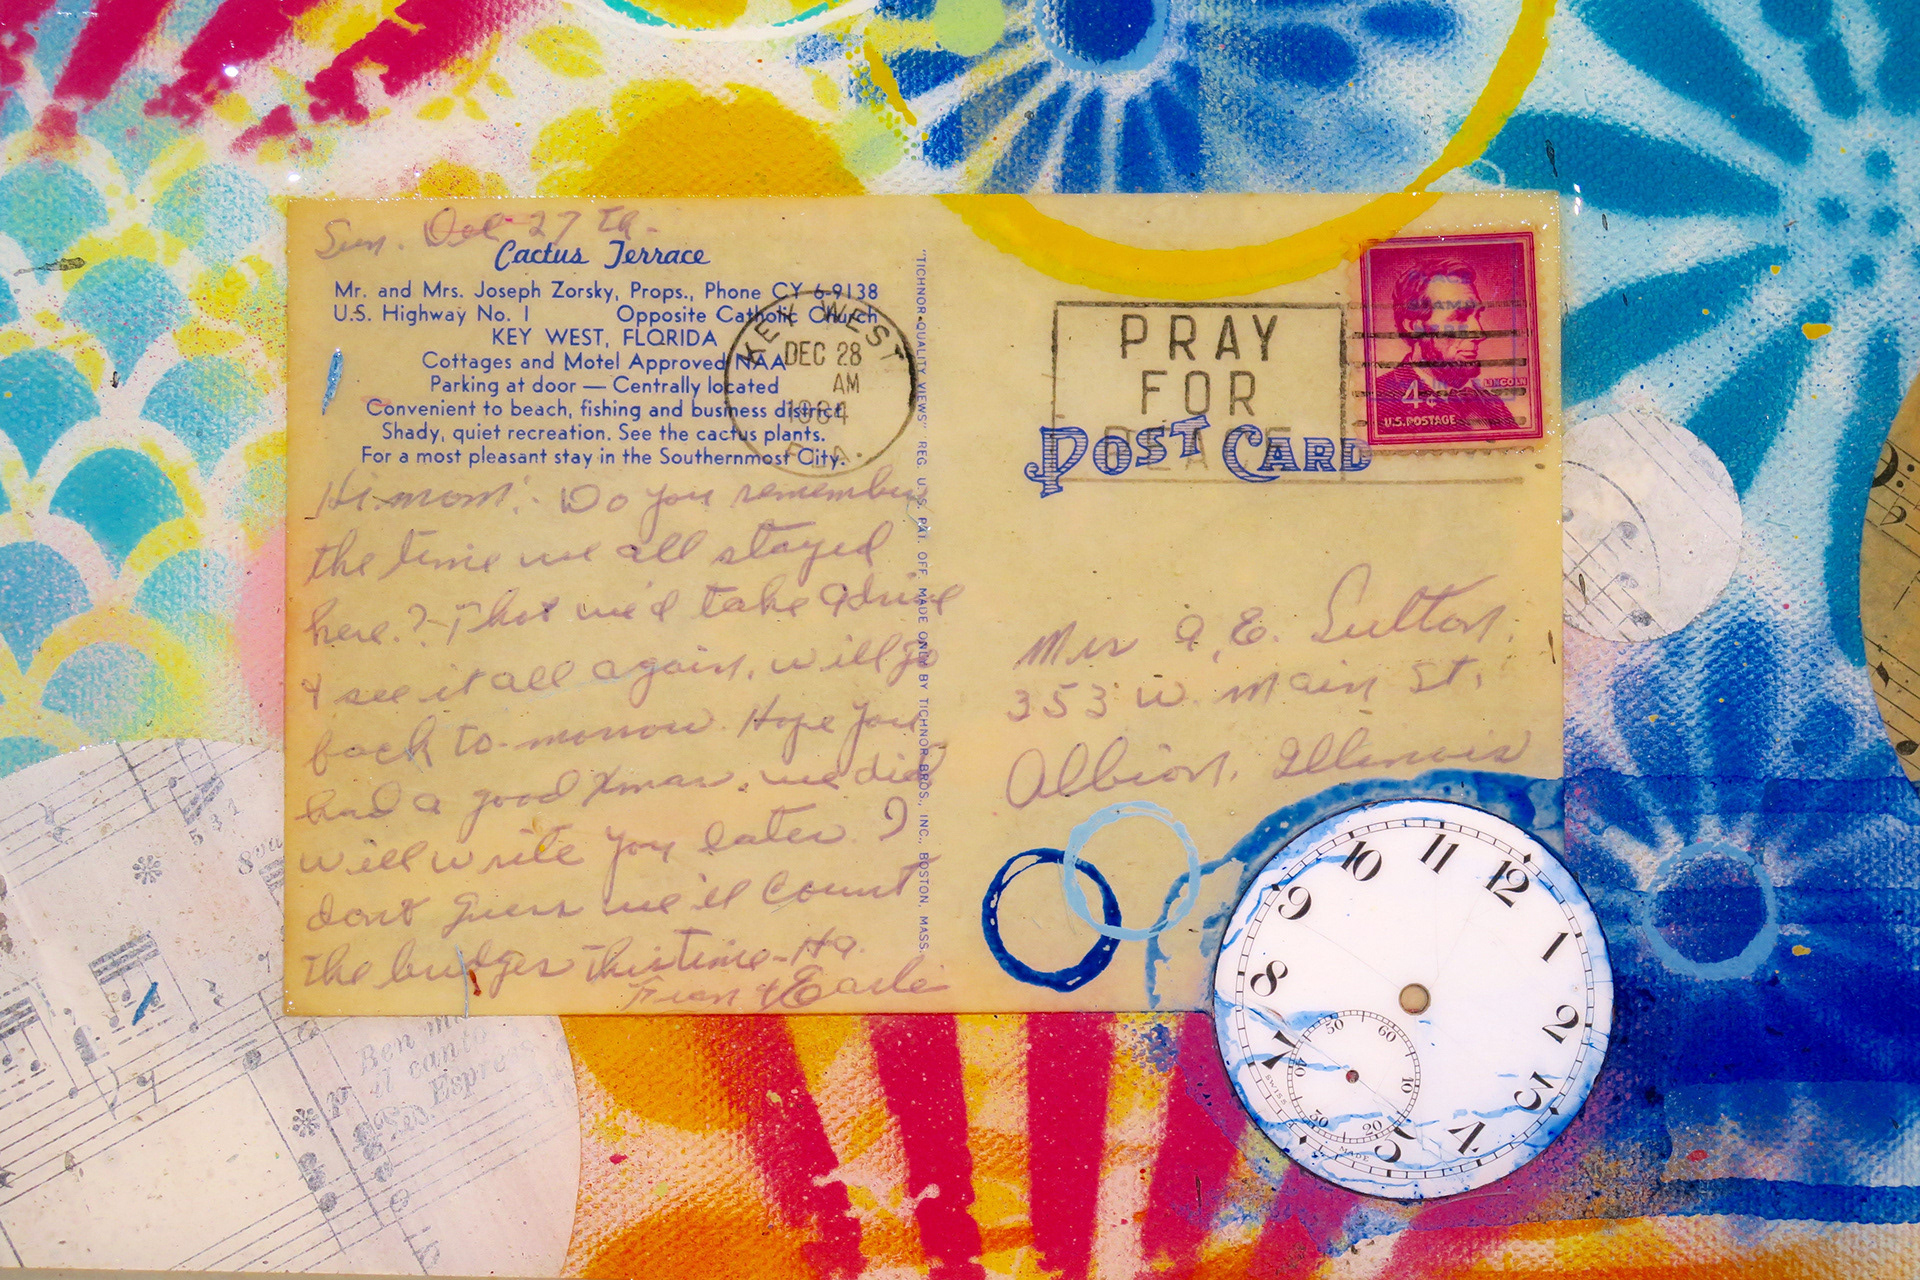 Sun. Dec 27 Th.
Cactus Terrace
Mr. and Mrs. Joseph Zorsky, Props., Phone CY 6-9138
U.S. Highway No. 1 Opposite Catholic Church
KEY WEST, FLORIDA
Cottages and Motel Approved NAA
Parking at door — Centrally located
Convenient to beach, fishing and business district.
Shady, quiet recreation. See the cactus plants.
For a most pleasant stay in the Southernmost City.
KEY WEST
DEC 28
AM
1964
FLA.
Hi mom! Do you remember
the time we all stayed
here? Thot we'd take a drive
& see it all again, will go
back to-morrow. Hope you
had a good Xmas, we did
will write you later. I
dont guess we'll count
the bridges this time - Ha.
Fran & Earle
"TICHNOR QUALITY VIEWS" REG. U.S. PAT. OFF. MADE ONLY BY TICHNOR BROS., INC., BOSTON, MASS.
PRAY
FOR
PEACE
POST CARD
PLACE
STAMP
HERE
LINCOLN
4¢
U.S. POSTAGE
Mrs A. E. Sutton.
353 W. Main St,
Albion, Illinois
11
12
1
2
3
4
5
7
8
9
10
60
10
20
30
40
50
SWISS
MADE
5 3 1
8va
Ben m
il canto
Espre